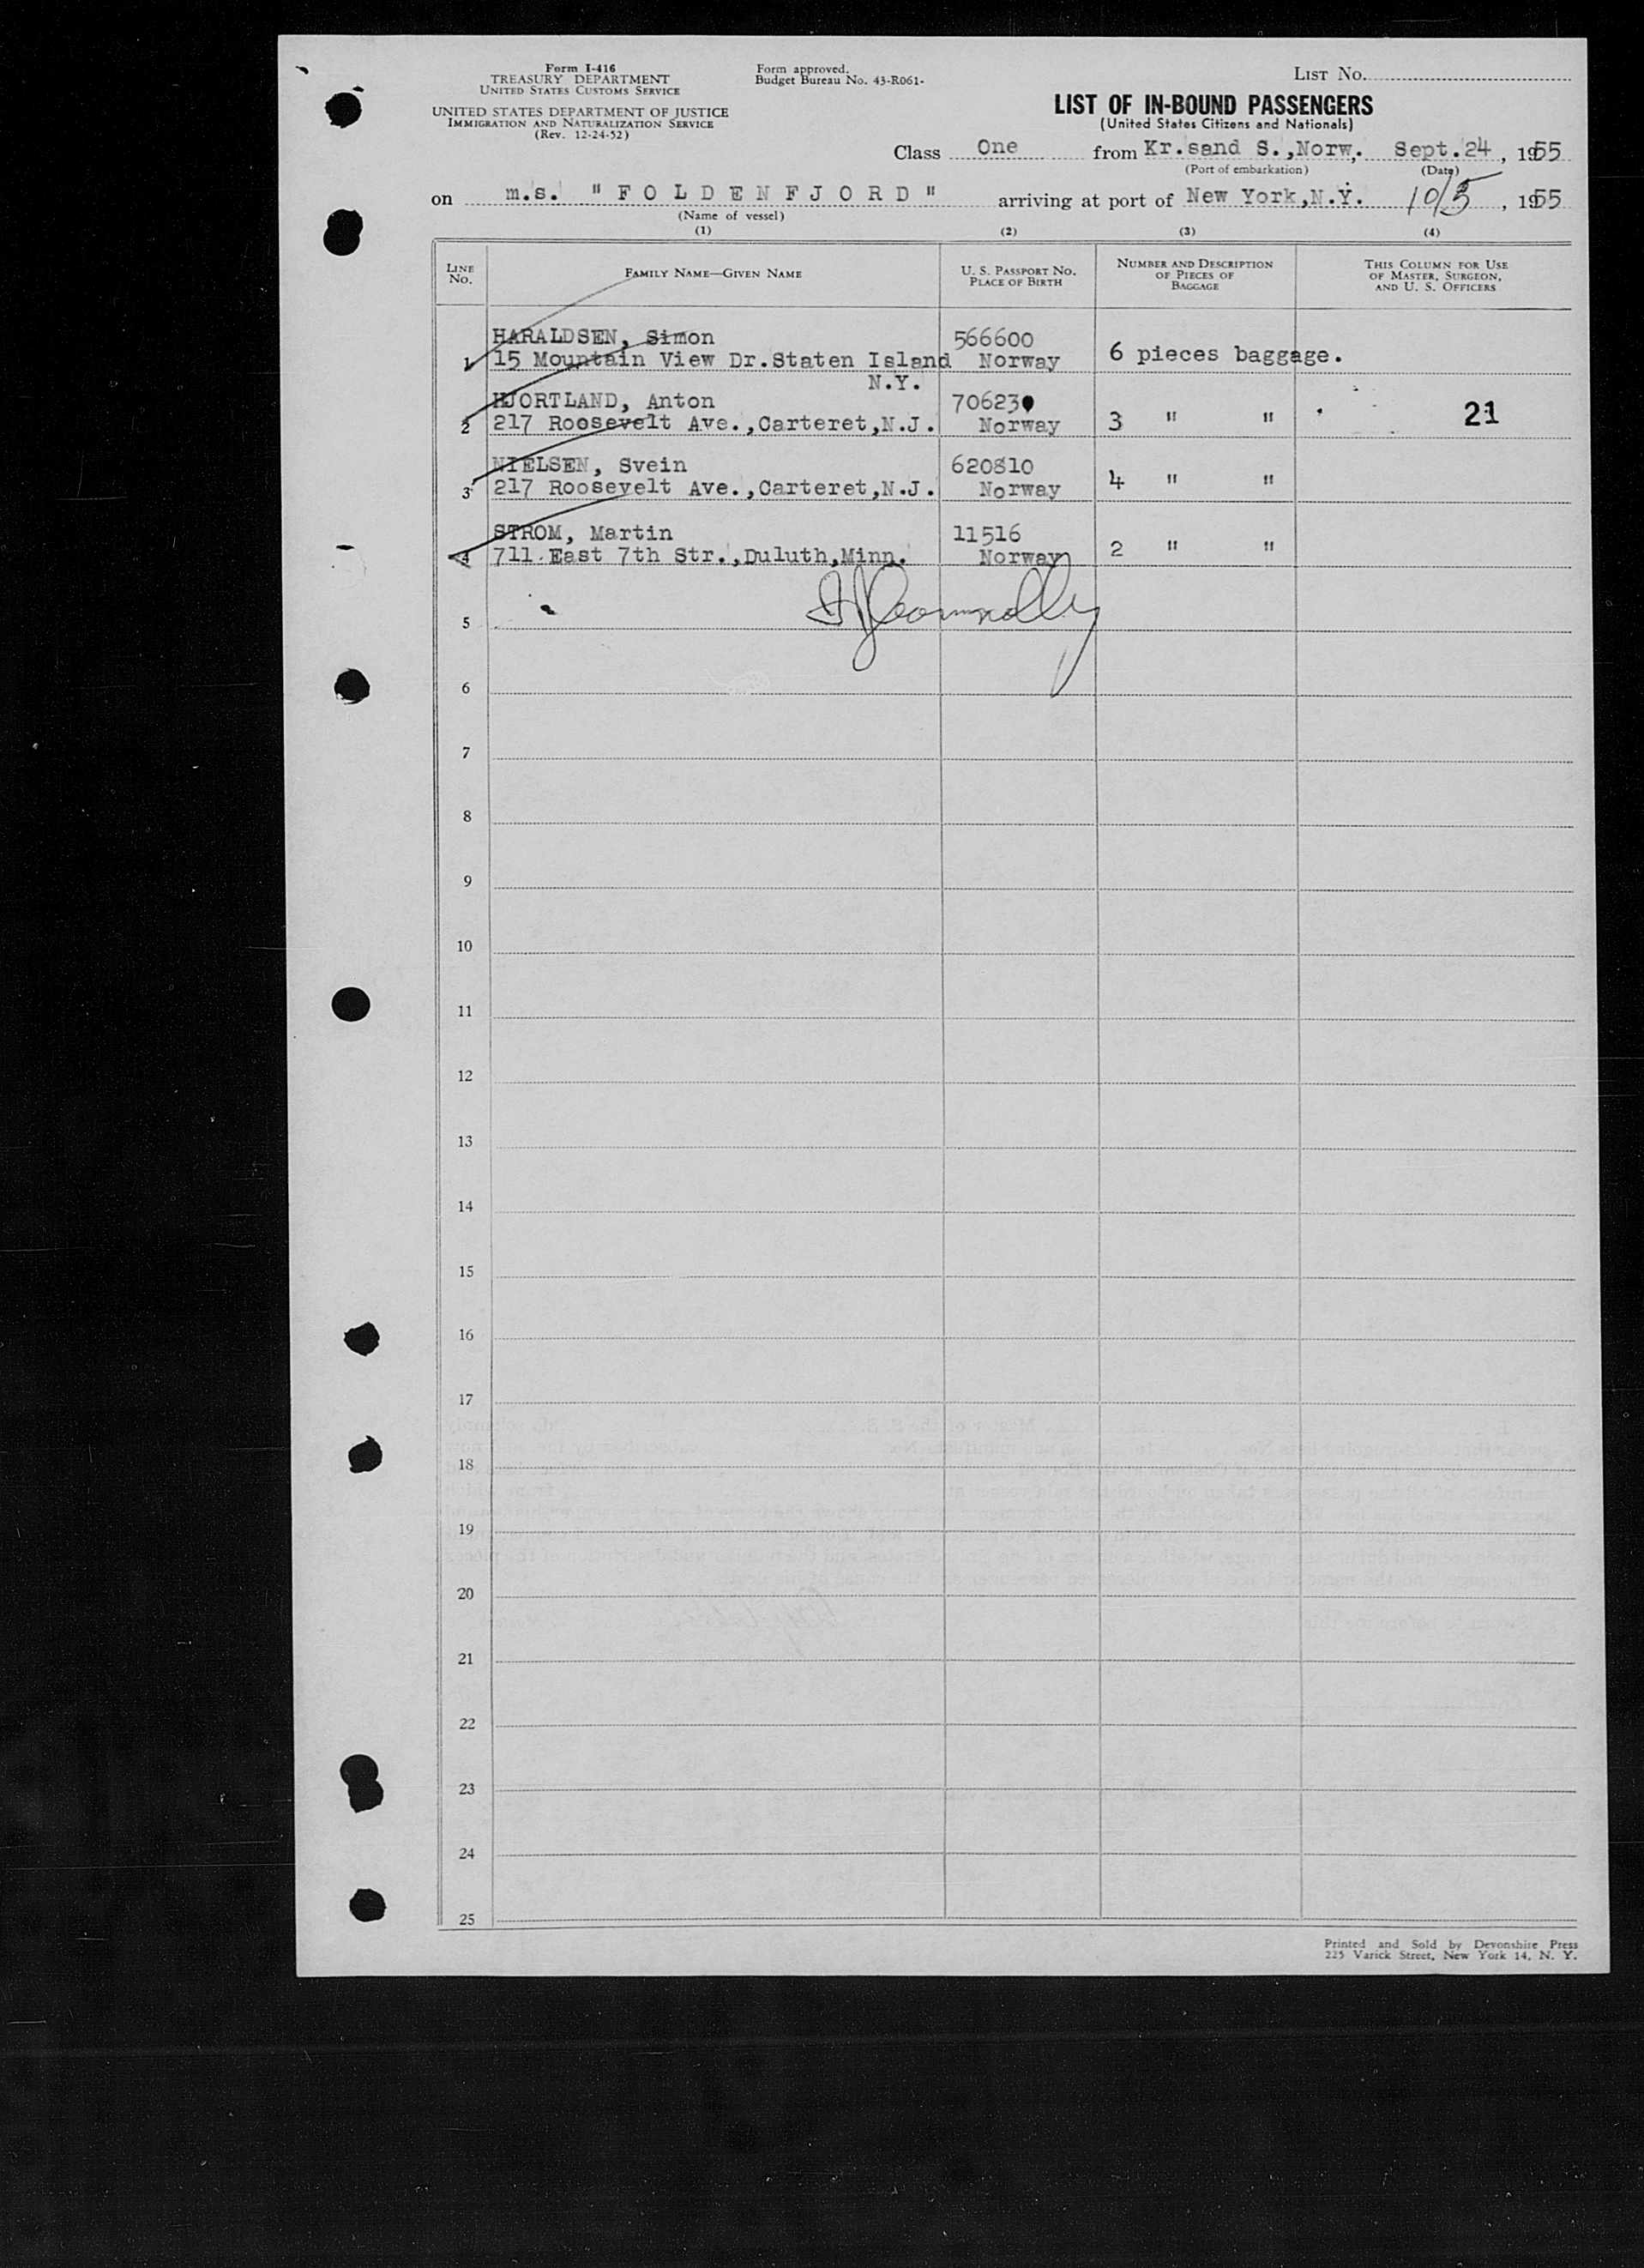 Form I-416
TREASURY DEPARTMENT
UNITED STATES CUSTOMS SERVICE
UNITED STATES DEPARTMENT OF JUSTICE
IMMIGRATION AND NATURALIZATION SERVICE
(Rev. 12-24-52)
Form approved.
Budget Bureau No. 43-R061-
LIST No.
LIST OF IN-BOUND PASSENGERS
(United States Citizens and Nationals)
Class One from Kr.sand S.,Norw. Sept.24, 1955
(Port of embarkation) (Date)
on m.s. "FOLDENFJORD" arriving at port of New York,N.Y. 10/5, 1955
(Name of vessel)
(1) (2) (3) (4)
LINE NO. FAMILY NAME—GIVEN NAME U. S. PASSPORT NO. PLACE OF BIRTH NUMBER AND DESCRIPTION OF PIECES OF BAGGAGE THIS COLUMN FOR USE OF MASTER, SURGEON, AND U. S. OFFICERS
HARALDSEN, Simon 566600
1 15 Mountain View Dr.Staten Island Norway 6 pieces baggage.
N.Y.
HJORTLAND, Anton 70623
2 217 Roosevelt Ave.,Carteret,N.J. Norway 3 " " 21
NIELSEN, Svein 620810
3 217 Roosevelt Ave.,Carteret,N.J. Norway 4 " "
STROM, Martin 11516
4 711 East 7th Str.,Duluth,Minn. Norway 2 " "
5
6
7
8
9
10
11
12
13
14
15
16
17
18
19
20
21
22
23
24
25
Printed and Sold by Devonshire Press
225 Varick Street, New York 14, N. Y.